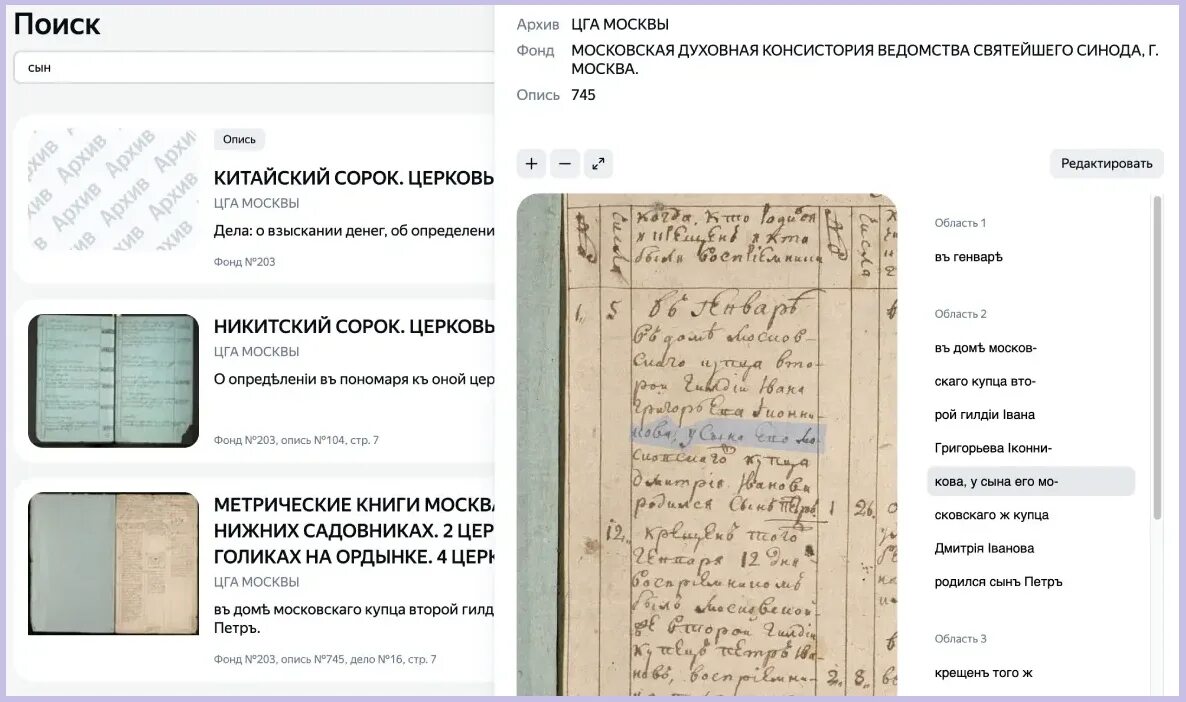 Поиск
сын
Архив Архив Архив Архив
Опись
КИТАЙСКИЙ СОРОК. ЦЕРКОВЬ
ЦГА МОСКВЫ
Дела: о взыскании денег, об определени
Фонд №203
НИКИТСКИЙ СОРОК. ЦЕРКОВЬ
ЦГА МОСКВЫ
О опредѣленіи въ пономаря къ оной цер
Фонд №203, опись №104, стр. 7
МЕТРИЧЕСКИЕ КНИГИ МОСКВА
НИЖНИХ САДОВНИКАХ. 2 ЦЕР
ГОЛИКАХ НА ОРДЫНКЕ. 4 ЦЕРК
ЦГА МОСКВЫ
въ домѣ московскаго купца второй гилд
Петръ.
Фонд №203, опись №745, дело №16, стр. 7
Архив ЦГА МОСКВЫ
Фонд МОСКОВСКАЯ ДУХОВНАЯ КОНСИСТОРИЯ ВЕДОМСТВА СВЯТЕЙШЕГО СИНОДА, Г.
МОСКВА.
Опись 745
+ −
Редактировать
когда, кто родился
и крещенъ и кто
были восприемники
числа
числа
1, 5 въ генварѣ
въ домѣ москов-
скаго купца вто-
рой гилдіи Івана
Григорьева Іконни-
кова, у сына его мо-
сковскаго ж купца
Дмитрія Іванова
родился сынъ Петръ 1 26
12 крещенъ того ж
генваря 12 дня
восприемникомъ
былъ московской
второй гилдіи
купецъ Петръ Іва-
новъ, восприемни- 2, 8,
Область 1
въ генварѣ
Область 2
въ домѣ москов-
скаго купца вто-
рой гилдіи Івана
Григорьева Іконни-
кова, у сына его мо-
сковскаго ж купца
Дмитрія Іванова
родился сынъ Петръ
Область 3
крещенъ того ж